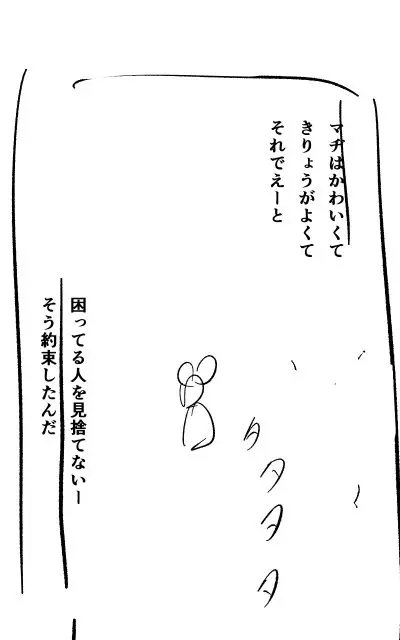 マヂはかわいくて
きりょうがよくて
それでえーと
タタタタ
困ってる人を見捨てないー
そう約束したんだ